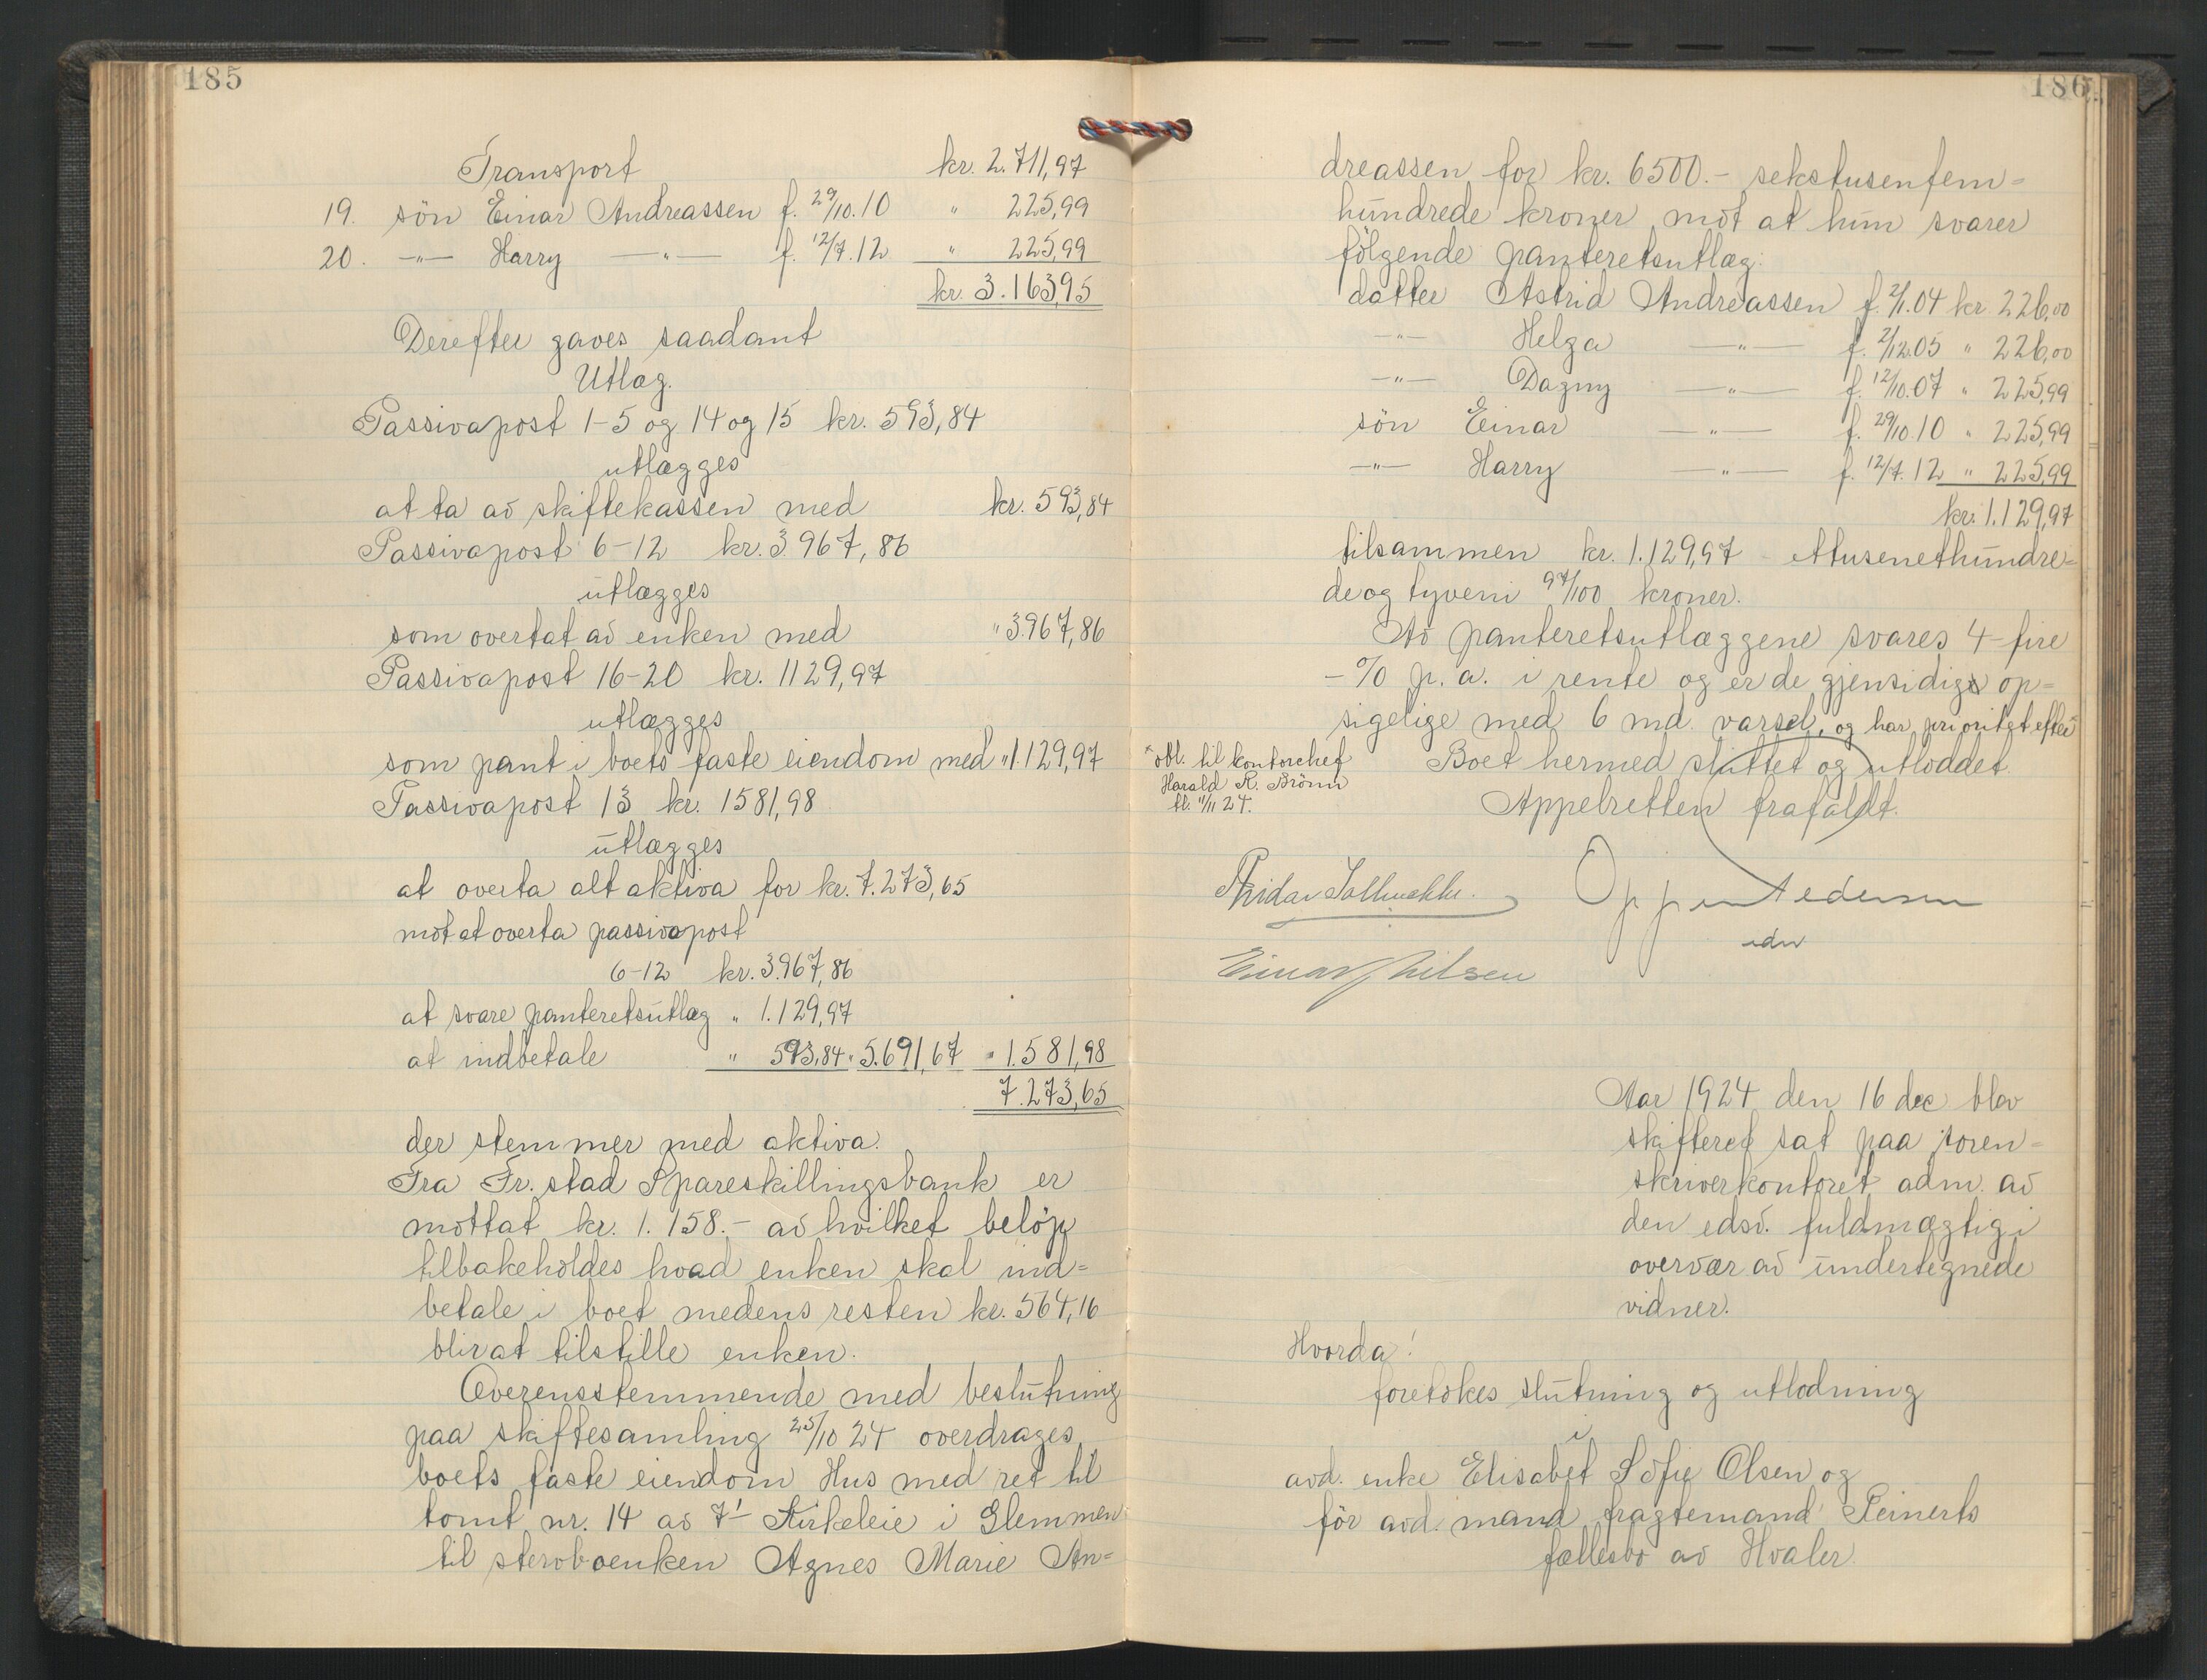 185
Transport kr. 2.711,97
19. sön Einar Andreassen f. 29/10.10 " 225,99
20. —"— Harry —"— f. 12/7.12 " 225,99
kr. 3.163,95
Derefter gaves saadant
Utlæg.
Passivapost 1-5 og 14 og 15 kr. 593,84
utlægges
at ta av skiftekassen med kr. 593,84
Passivapost 6-12 kr. 3.967,86
utlægges
som overtat av enken med " 3.967,86
Passivapost 16-20 kr. 1129,97
utlægges
som pant i boets faste eiendom med " 1.129,97
Passivapost 13 kr. 1581,98
utlægges
at overta alt aktiva for kr. 7.273,65
mot at overta passivapost
6-12 kr. 3.967,86
at svare panteretsutlæg " 1.129,97
at indbetale " 593,84 " 5.691,67 " 1.581,98
7.273,65
der stemmer med aktiva.
Fra Fr.stad Spareskillingsbank er
mottat kr. 1.158.- av hvilket beløp
tilbakeholdes hvad enken skal ind=
betale i boet medens resten kr. 564,16
blir at tilstille enken.
Overensstemmende med beslutning
paa skiftesamling 25/10 24 overdrages
boets faste eiendom Hus med ret til
tomt nr. 14 av 7' Kirkeleie i Glemmen
til stervboenken Agnes Marie An=
186
dreassen for kr. 6500.- sekstusenfem=
hundrede kroner mot at hun svarer
følgende panteretsutlæg:
datter Astrid Andreassen f. 2/1.04 kr. 226,00
—"— Helga —"— f. 2/12.05 " 226,00
—"— Dagny —"— f. 12/10.07 " 225,99
sön Einar —"— f. 29/10.10 " 225,99
—"— Harry —"— f. 12/7.12 " 225,99
kr. 1.129,97
tilsammen kr. 1.129,97 - ettusenethundre=
de og tyveni 97/100 kroner.
Av panteretsutlæggene svares 4-fire
-% p.a. i rente og er de gjensidige op=
sigelige med 6 md. varsel, og har prioritet efter
* obl. til kontorchef
Harald R. Brönn
tl. 11/11 24.
Boet hermed sluttet og utloddet.
Appelretten frafaldt.
Einar Nilsen
edsv
Aar 1924 den 16 dec blev
skifteret sat paa soren=
skriverkontoret adm. av
den edsv. fuldmægtig i
overvær av undertegnede
vidner.
Hvorda!
foretokes slutning og utlodning
i
avd. enke Elisabet Sofie Olsen og
för avd. mand fragtemand Reinerts
fællesbo av Hvaler.